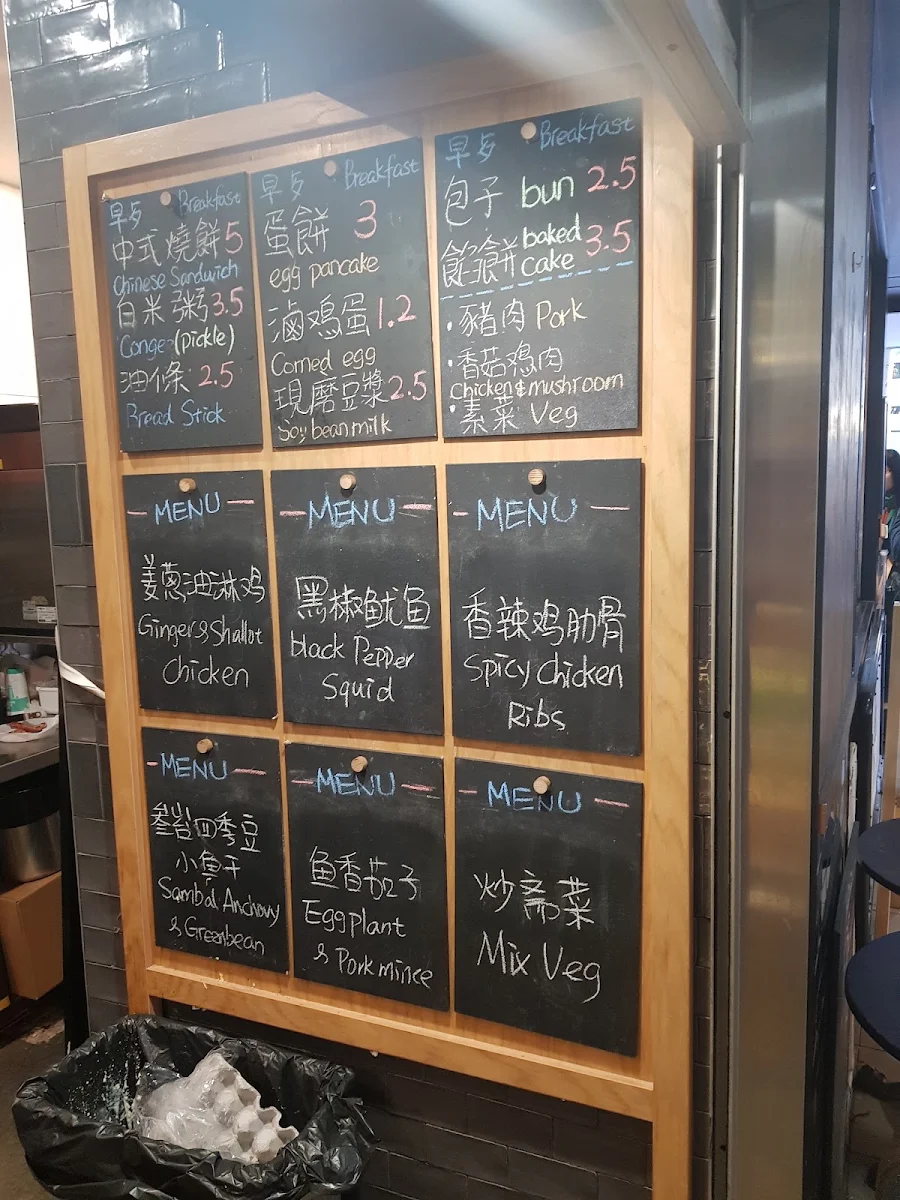 早歺 Breakfast
中式燒餅 5
Chinese Sandwich
白米粥 3.5
Conge (pickle)
油條 2.5
Bread Stick
早歺 Breakfast
蛋餅 3
egg pancake
滷鸡蛋 1.2
Corned egg
現磨豆漿 2.5
Soy bean milk
早歺 Breakfast
包子 bun 2.5
餡餅 baked cake 3.5
·豬肉 Pork
·香菇鸡肉
chicken & mushroom
·素菜 Veg
MENU
姜蔥油淋鸡
Ginger & Shallot
Chicken
MENU
黑椒鱿鱼
black Pepper
Squid
MENU
香辣鸡肋骨
Spicy chicken
Ribs
MENU
叁峇四季豆
小鱼干
Sambal Anchovy
& Greenbean
MENU
鱼香茄子
Eggplant
& Pork mince
MENU
炒斋菜
Mix Veg